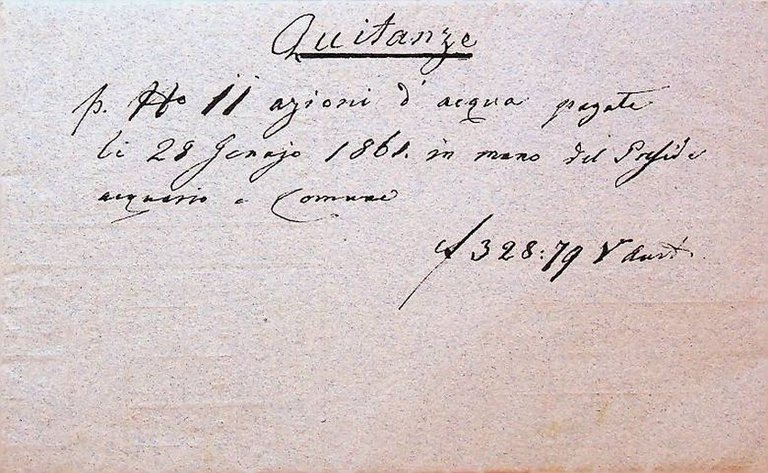 Quitanze
p. No 11 azioni d'acqua pagate
li 28 Genajo 1861. in mano del Preside
acquario e Comune
f 328:79 V Aust.